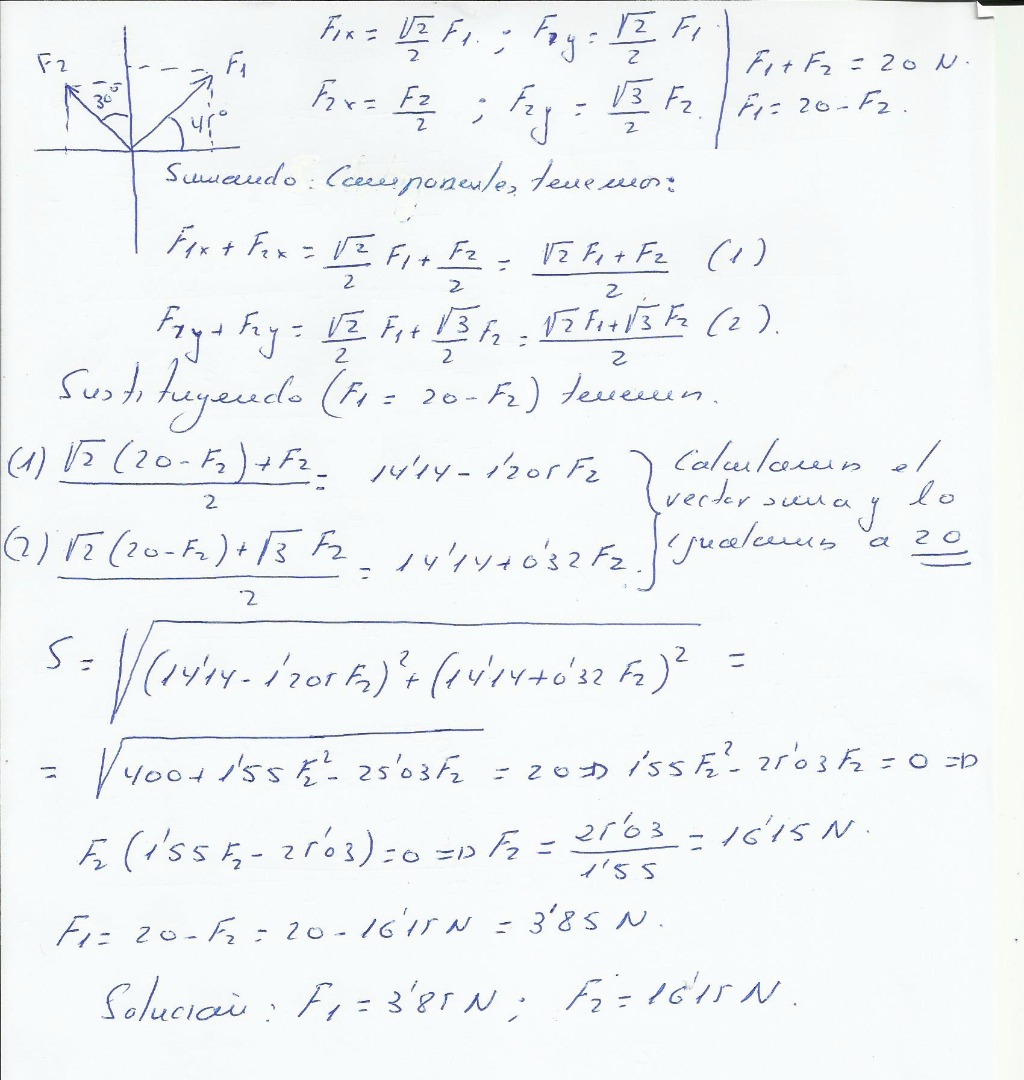 F2 F1
30º 45º
F1x = √2/2 F1. ; F1y = √2/2 F1
F2x = F2/2 ; F2y = √3/2 F2.
F1 + F2 = 20 N.
F1 = 20 - F2.
Sumando: Componentes tenemos:
F1x + F2x = √2/2 F1 + F2/2 = (√2 F1 + F2)/2 (1)
F1y + F2y = √2/2 F1 + √3/2 F2 = (√2 F1 + √3 F2)/2 (2).
Sustituyendo (F1 = 20 - F2) tenemos.
(1) (√2 (20 - F2) + F2)/2 = 14'14 - 1'205 F2
(2) (√2 (20 - F2) + √3 F2)/2 = 14'14 + 0'32 F2.
Calculamos el
vector suma y lo
igualamos a 20
S = √((14'14 - 1'205 F2)² + (14'14 + 0'32 F2)²) =
= √(400 + 1'55 F2² - 25'03 F2) = 20 => 1'55 F2² - 25'03 F2 = 0 =>
F2 (1'55 F2 - 25'03) = 0 => F2 = 25'03/1'55 = 16'15 N.
F1 = 20 - F2 = 20 - 16'15 N = 3'85 N.
Solución: F1 = 3'85 N; F2 = 16'15 N.